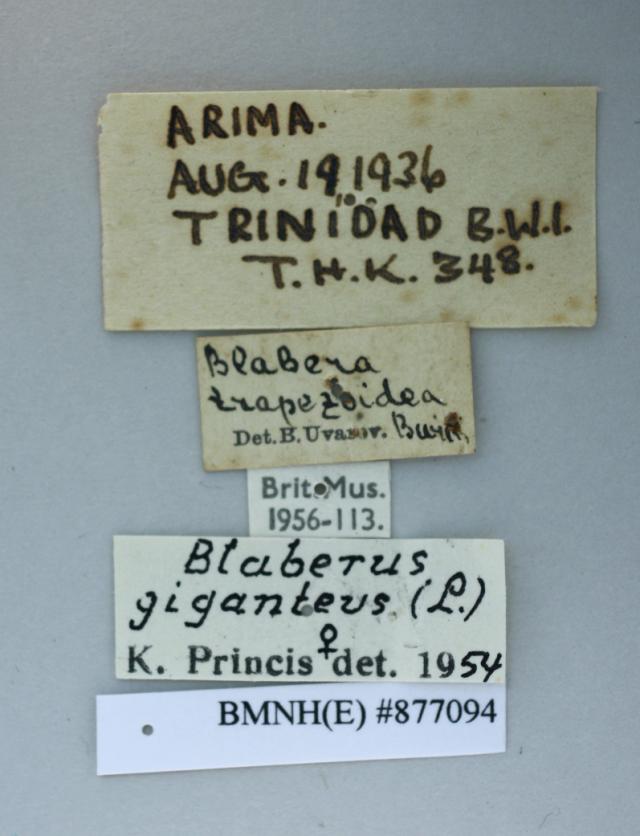 ARIMA.
AUG. 19 1936
TRINIDAD B.W.I.
T.H.K. 348.
Blabera
trapezoidea
Det. B. Uvarov. Burm.
Brit. Mus.
1956-113.
Blaberus
giganteus (L.)
♀
K. Princis det. 1954
BMNH(E) #877094